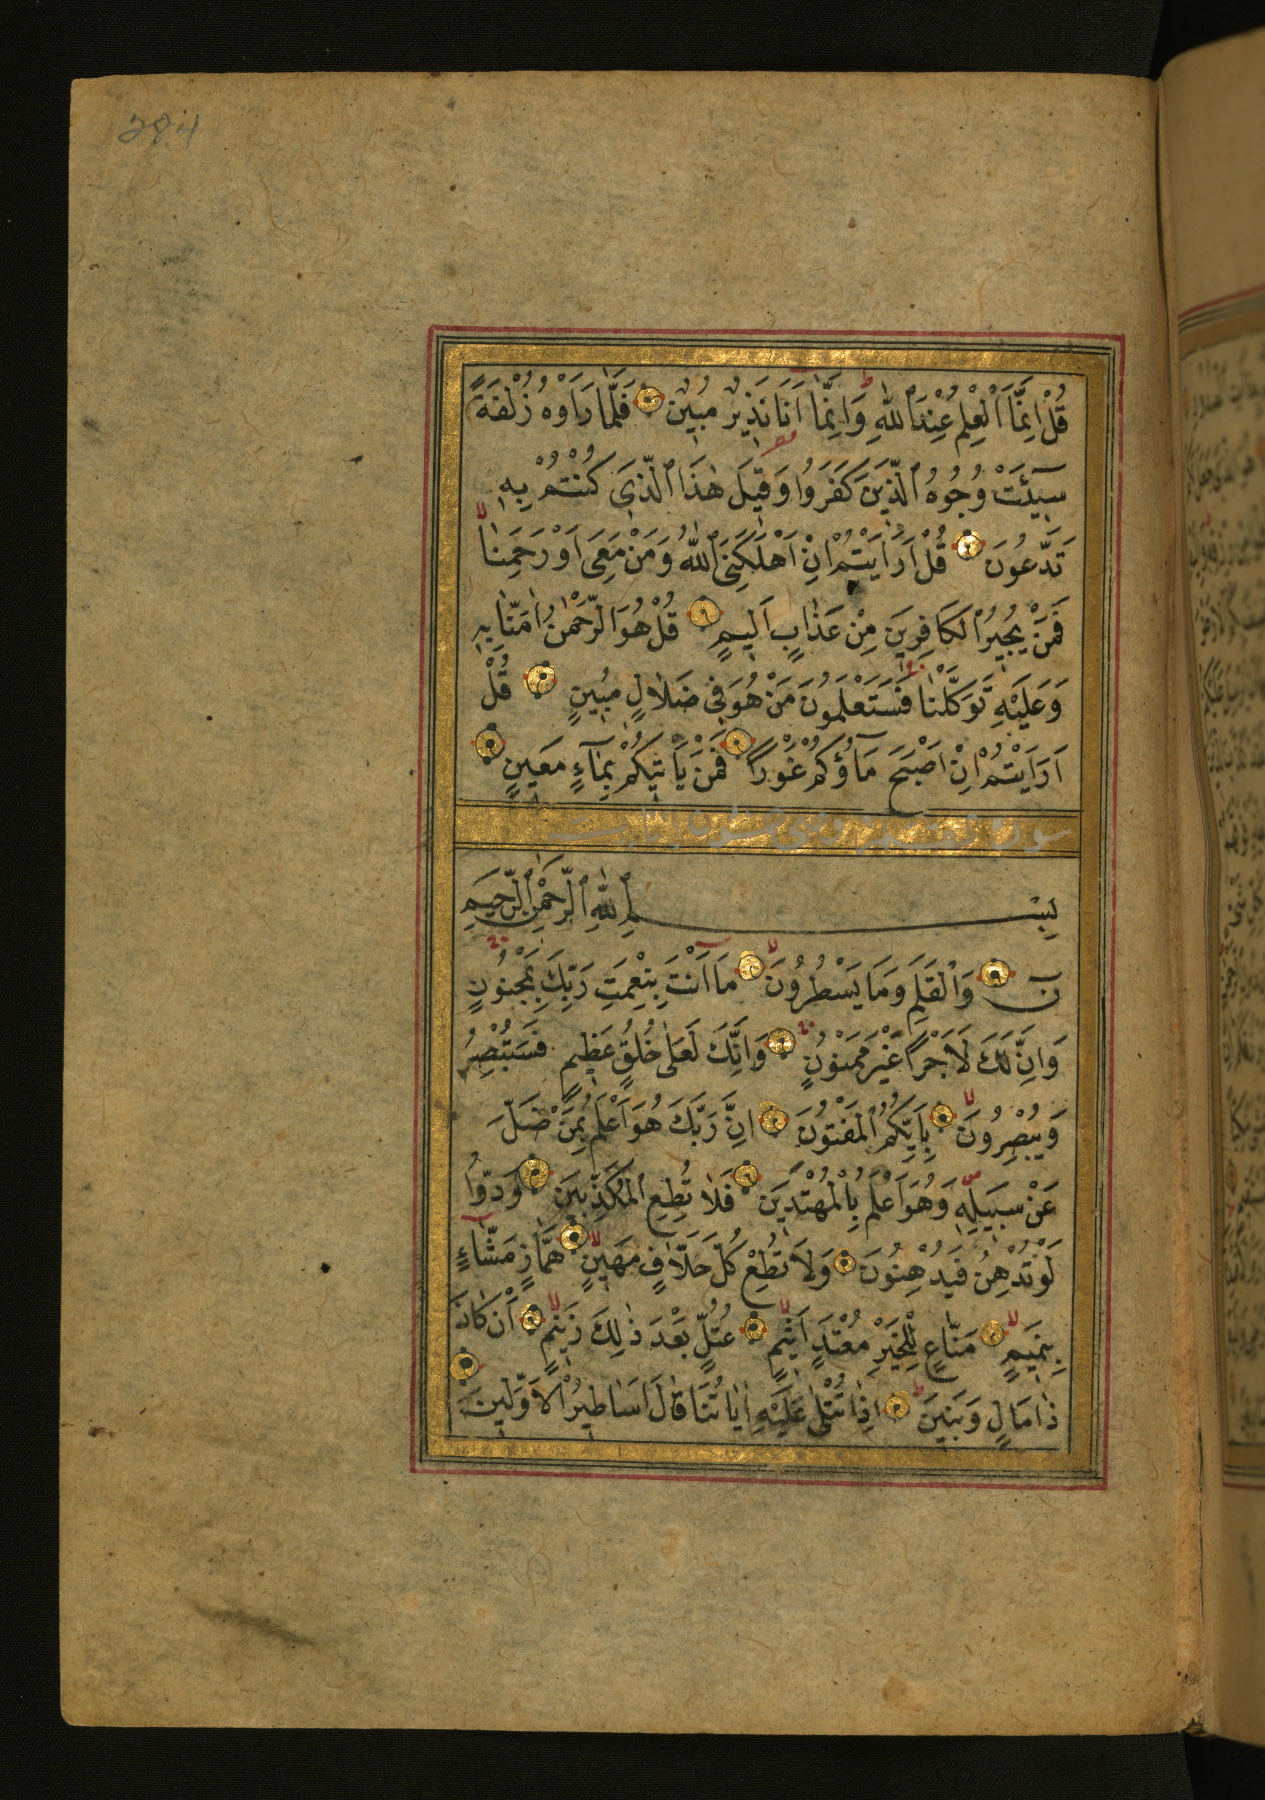 284
قُلْ اِنَّمَا الْعِلْمُ عِنْدَ اللّٰهِ وَاِنَّمَا اَنَا نَذِيرٌ مُبِينٌ فَلَمَّا رَاَوْهُ زُلْفَةً
سِيٓئَتْ وُجُوهُ الَّذِينَ كَفَرُوا وَقِيلَ هٰذَا الَّذِى كُنْتُمْ بِهِ
تَدَّعُونَ قُلْ اَرَاَيْتُمْ اِنْ اَهْلَكَنِىَ اللّٰهُ وَمَنْ مَعِىَ اَوْ رَحِمَنَا
فَمَنْ يُجِيرُ الْكَافِرِينَ مِنْ عَذَابٍ اَلِيمٍ قُلْ هُوَ الرَّحْمٰنُ اٰمَنَّا بِهِ
وَعَلَيْهِ تَوَكَّلْنَا فَسَتَعْلَمُونَ مَنْ هُوَ فِى ضَلَالٍ مُبِينٍ قُلْ
اَرَاَيْتُمْ اِنْ اَصْبَحَ مَآؤُكُمْ غَوْرًا فَمَنْ يَاْتِيكُمْ بِمَآءٍ مَعِينٍ
سورة وهى
بِسْمِ اللّٰهِ الرَّحْمٰنِ الرَّحِيمِ
نٓ وَالْقَلَمِ وَمَا يَسْطُرُونَ مَا اَنْتَ بِنِعْمَتِ رَبِّكَ بِمَجْنُونٍ
وَاِنَّ لَكَ لَاَجْرًا غَيْرَ مَمْنُونٍ وَاِنَّكَ لَعَلٰى خُلُقٍ عَظِيمٍ فَسَتُبْصِرُ
وَيُبْصِرُونَ بِاَيِّكُمُ الْمَفْتُونُ اِنَّ رَبَّكَ هُوَ اَعْلَمُ بِمَنْ ضَلَّ
عَنْ سَبِيلِهِ وَهُوَ اَعْلَمُ بِالْمُهْتَدِينَ فَلَا تُطِعِ الْمُكَذِّبِينَ وَدُّوا
لَوْ تُدْهِنُ فَيُدْهِنُونَ وَلَا تُطِعْ كُلَّ حَلَّافٍ مَهِينٍ هَمَّازٍ مَشَّاءٍ
بِنَمِيمٍ مَنَّاعٍ لِلْخَيْرِ مُعْتَدٍ اَثِيمٍ عُتُلٍّ بَعْدَ ذٰلِكَ زَنِيمٍ اَنْ كَانَ
ذَا مَالٍ وَبَنِينَ اِذَا تُتْلٰى عَلَيْهِ اٰيَاتُنَا قَالَ اَسَاطِيرُ الْاَوَّلِينَ